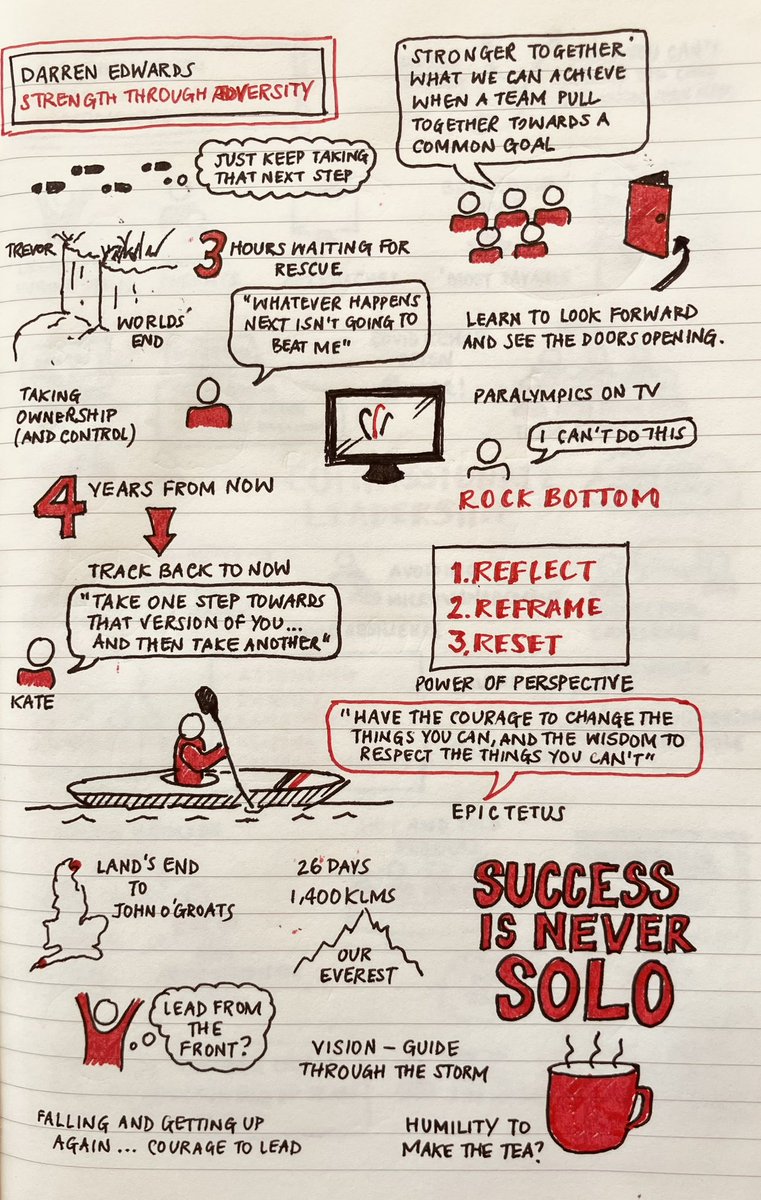 DARREN EDWARDS
STRENGTH THROUGH ADVERSITY
'STRONGER TOGETHER'
WHAT WE CAN ACHIEVE
WHEN A TEAM PULL
TOGETHER TOWARDS A
COMMON GOAL
JUST KEEP TAKING
THAT NEXT STEP
TREVOR
WORLDS'
END
3 HOURS WAITING FOR
RESCUE
"WHATEVER HAPPENS
NEXT ISN'T GOING TO
BEAT ME"
LEARN TO LOOK FORWARD
AND SEE THE DOORS OPENING.
TAKING
OWNERSHIP
(AND CONTROL)
PARALYMPICS ON TV
I CAN'T DO THIS
ROCK BOTTOM
4 YEARS FROM NOW
TRACK BACK TO NOW
"TAKE ONE STEP TOWARDS
THAT VERSION OF YOU...
AND THEN TAKE ANOTHER"
KATE
1. REFLECT
2. REFRAME
3. RESET
POWER OF PERSPECTIVE
"HAVE THE COURAGE TO CHANGE THE
THINGS YOU CAN, AND THE WISDOM TO
RESPECT THE THINGS YOU CAN'T"
EPICTETUS
LAND'S END
TO
JOHN O'GROATS
26 DAYS
1,400 KLMS
OUR
EVEREST
SUCCESS
IS NEVER
SOLO
LEAD FROM
THE
FRONT?
VISION – GUIDE
THROUGH THE STORM
FALLING AND GETTING UP
AGAIN... COURAGE TO LEAD
HUMILITY TO
MAKE THE TEA?